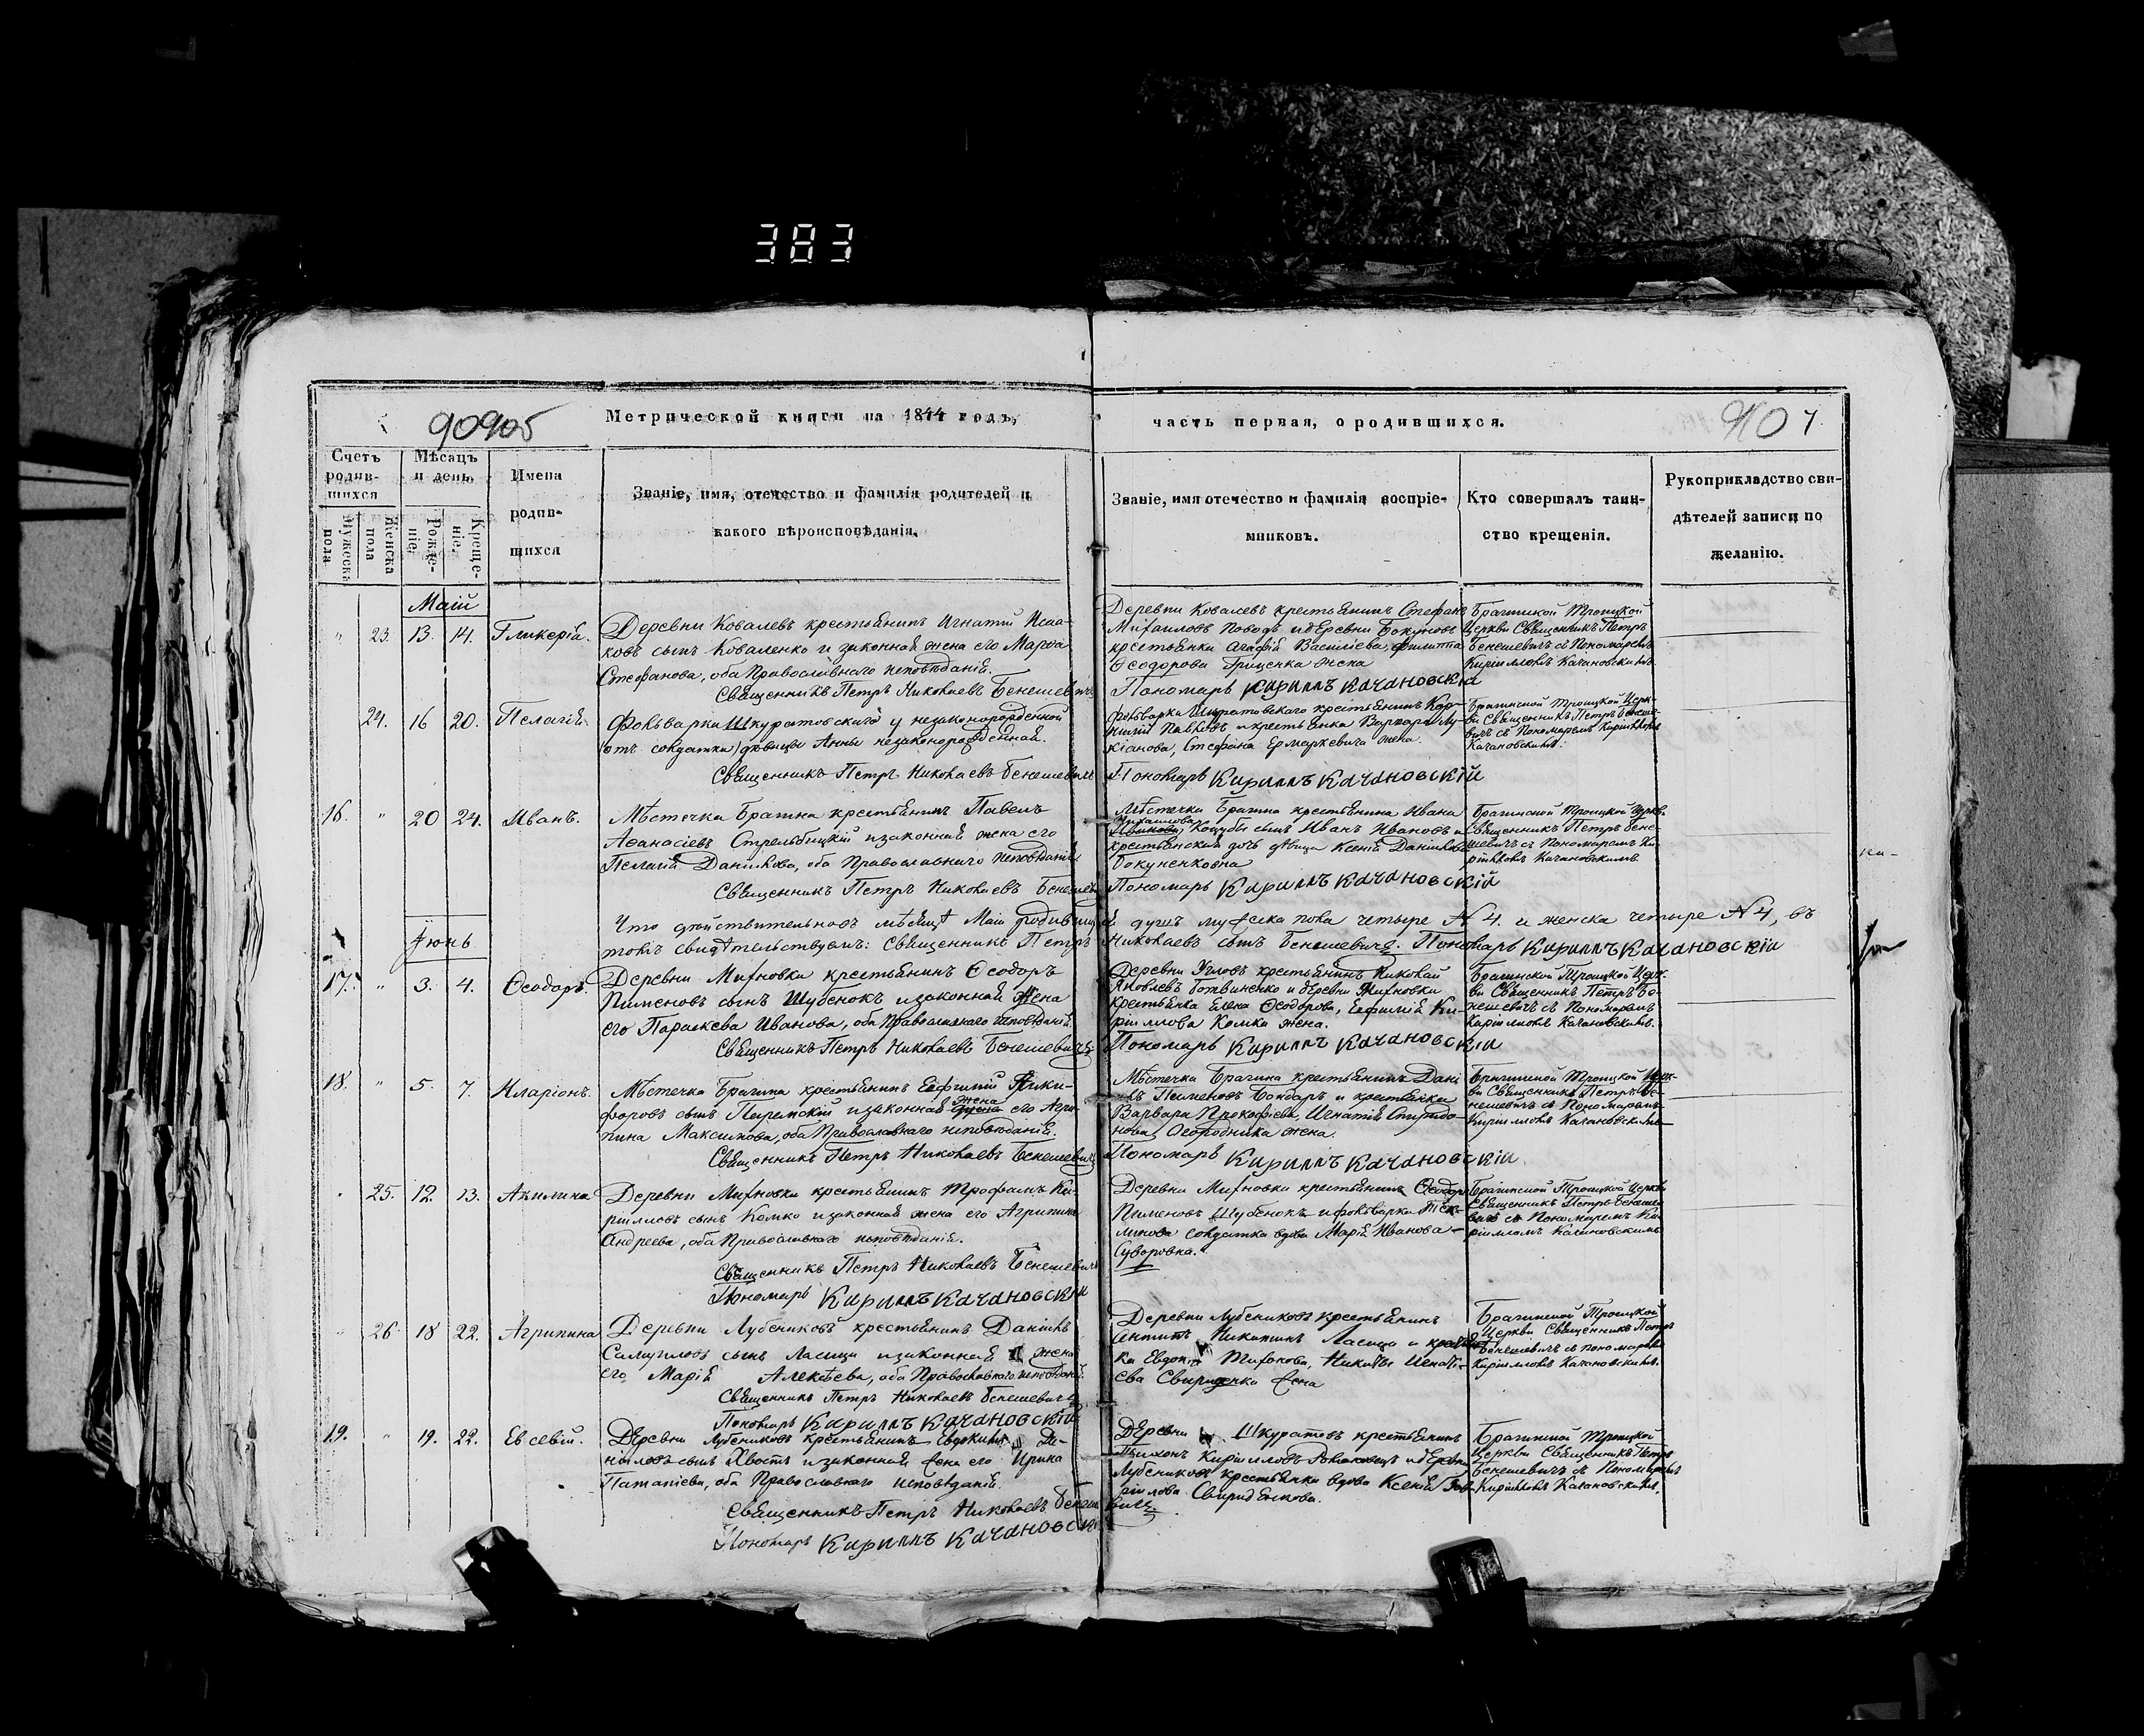 383
90905
Метрической книги на 1844 годъ,
часть первая, о родившихся.
910 7.
Счетъ родив-шихся
Мужеска пола
Женска пола
Мѣсяцъ и день.
Рожде-ніе.
Креще-ніе.
Имена родив-шихся
Званіе, имя, отечество и фамилія родителей и
какого вѣроисповѣданія.
Званіе, имя отечество и фамилія воспріе-
мниковъ.
Кто совершалъ таин-
ство крещенія.
Рукоприкладство сви-
дѣтелей записи по
желанію.
Маій
" 23. 13. 14. Гликерія.
Деревни Ковалевъ крестьянинъ Игнатій Исаа-
ковъ сынъ Коваленко и законная жена его Марѳа
Стефанова, оба Православнаго исповѣданія.
Священникъ Петръ Николаевъ Бенешевичъ
Деревни Ковалевъ крестьянинъ Стефанъ
Михаиловъ и деревни Бокуновъ
крестьянка Агафія Василіева, Филиппа
Ѳеодорова Гриценка жена
Пономарь Кириллъ Качановскій
Брагинской Троицкой
Церкви Священникъ Петръ
Бенешевичъ съ Пономаремъ
Кирилломъ Качановскимъ.
24. 16 20. Пелагія.
Фольварка Шкуратовскаго у незаконорожденной
(отъ солдатки) дѣвицы Анны незаконорожденная.
Священникъ Петръ Николаевъ Бенешевичъ
Фольварка Шкуратовскаго крестьянинъ Кор-
нилій Павловъ и крестьянка Варвара Лу-
кіанова, Стефана Ермаркевича жена.
Пономарь Кириллъ Качановскій
Брагинской Троицкой Церк-
ви Священникъ Петръ Бенеше-
вичъ съ Пономаремъ Кирилломъ
Качановскимъ.
16. " 20 24. Иванъ.
Мѣстечка Брагина крестьянинъ Павелъ
Аѳанасіевъ Стрельбицкій и законная жена его
Пелагія Данилова, оба Православнаго исповѣданія
Священникъ Петръ Николаевъ Бенешев
Мѣстечка Брагина крестьянина Ивана
Михаилова
Коцубы сынъ Иванъ Ивановъ и
крестьянская дочь дѣвица Ксенія Данилова
Бокуненковна
Пономарь Кириллъ Качановскій
Брагинской Троицкой Церкви
Священникъ Петръ Бене-
шевичъ съ Пономаремъ Ки-
рилломъ Качановскимъ
Что дѣйствительно въ мѣсяцѣ Маіи родивших
ся душъ мужска пола четыре N 4. и женска четыре N 4, въ
томъ свидѣтельствуемъ: Священникъ Петръ
Николаевъ сынъ Бенешевичъ. Пономарь Кириллъ Качановскій
Іюнь
17. " 3. 4. Ѳеодоръ.
Деревни Михновки крестьянинъ Ѳеодоръ
Пименовъ сынъ Шубенокъ и законная жена
его Параскева Иванова, оба Православнаго исповѣданія.
Священникъ Петръ Николаевъ Бенешевичъ.
Деревни Угловъ крестьянинъ Николай
Яковлевъ Готвиненко и деревни Михновки
крестьянка Елена Ѳеодорова, Евфимія Ки-
риллова Комка жена.
Пономарь Кириллъ Качановскій
Брагинской Троицкой Церк-
ви Священникъ Петръ Бе-
нешевичъ съ Пономаремъ
Кирилломъ Качановскимъ.
18. " 5. 7. Иларіонъ.
Мѣстечка Брагина крестьянинъ Евфимій Ники-
форовъ сынъ Пиремскій и законная жена его Агри-
пина Максимова, оба Православнаго исповѣданія.
Священникъ Петръ Николаевъ Бенешевичъ
Мѣстечка Брагина крестьянинъ Дані
илъ Пименовъ Бондарь и крестьянка
Варвара Прокофіева, Игнатія Спиридо-
нова Огородника жена.
Пономарь Кириллъ Качановскій
Брагинской Троицкой Церк-
ви Священникъ Петръ Бе-
нешевичъ съ Пономаремъ
Кирилломъ Качановскимъ
25. 12. 13. Акилина
Деревни Михновки крестьянинъ Трофимъ Ки-
рилловъ сынъ Комко и законная жена его Агрипина
Андреева, оба Православнаго исповѣданія.
Священникъ Петръ Николаевъ Бенешевичъ
Пономарь Кириллъ Качановскій
Деревни Михновки крестьянинъ Ѳеодоръ
Пименовъ Шубенокъ и фольварка
солдатка вдова Марія Иванова
Суворовна.
Брагинской Троицкой Церкви
Священникъ Петръ Бенеше-
вичъ съ Пономаремъ Ки-
рилломъ Качановскимъ
26. 18 22. Агрипина
Деревни Лубениковъ крестьянинъ Даніилъ
Самуиловъ сынъ Ласица и законная жена
его Марія Алексѣева, оба Православнаго исповѣданія.
Священникъ Петръ Николаевъ Бенешевичъ
Пономарь Кириллъ Качановскій
Деревни Лубениковъ крестьянинъ
Антипъ Никитинъ Ласица и крестьян
ка Евдокія Тихонова, Никиты Игнатi-
ева Свириденка жена
Брагинской Троицкой
Церкви Священникъ Петръ
Бенешевичъ съ пономаремъ
Кирилломъ Качановскимъ.
19. " 19. 22. Евсевій.
Деревни Лубениковъ крестьянинъ Евдокимъ Да-
ниловъ сынъ Хвостъ и законная жена его Ирина
Патапіева, оба Православнаго исповѣданія.
Священникъ Петръ Николаевъ Бенеше
вичъ.
Пономарь Кириллъ Качановскі
Деревни Шкуратовъ крестьянинъ
Кирилловъ и деревни
Лубениковъ крестьянка вдова Ксенія
Свириденкова.
Брагинской Троицкой
Церкви Священникъ Петръ
Бенешевичъ съ Пономаремъ
Кирилломъ Качановскимъ.